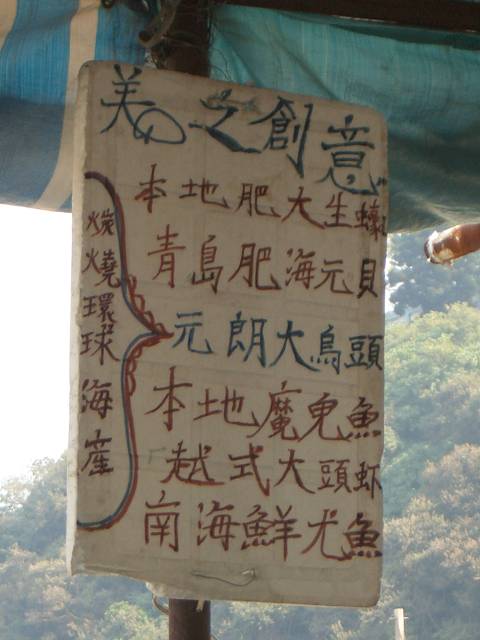 美の之創意
炭燒環球海産
本地肥大生蠔
青島肥海元貝
元朗大烏頭
本地魔鬼魚
越式大頭虾
南海鮮尤魚